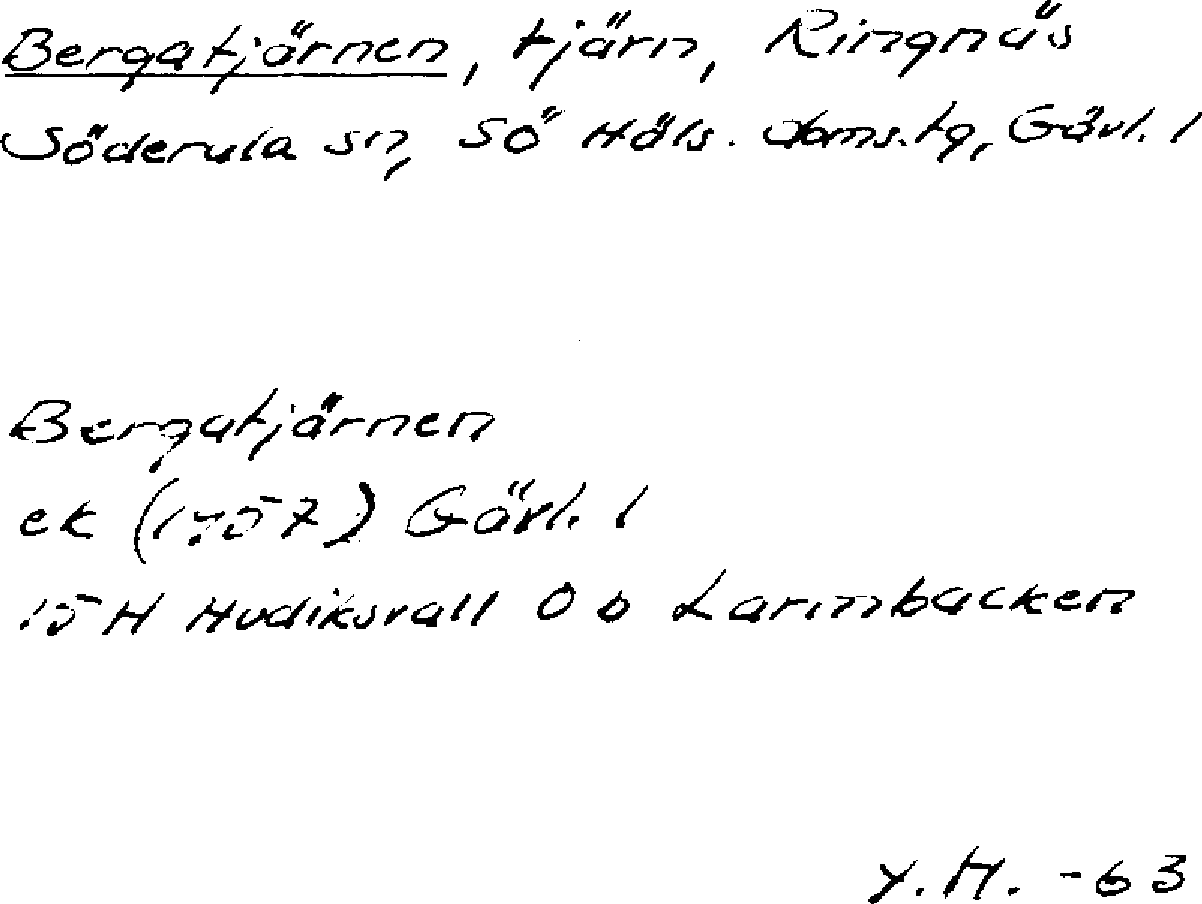 Bergatjärnen, tjärn, Ringnäs
Söderala sn, SÖ Häls. doms.tg, Gävl. l
Bergatjärnen
ek (1957) Gävl. l
15H Hudiksvall 0 b Larmbacken
Y.M. -63